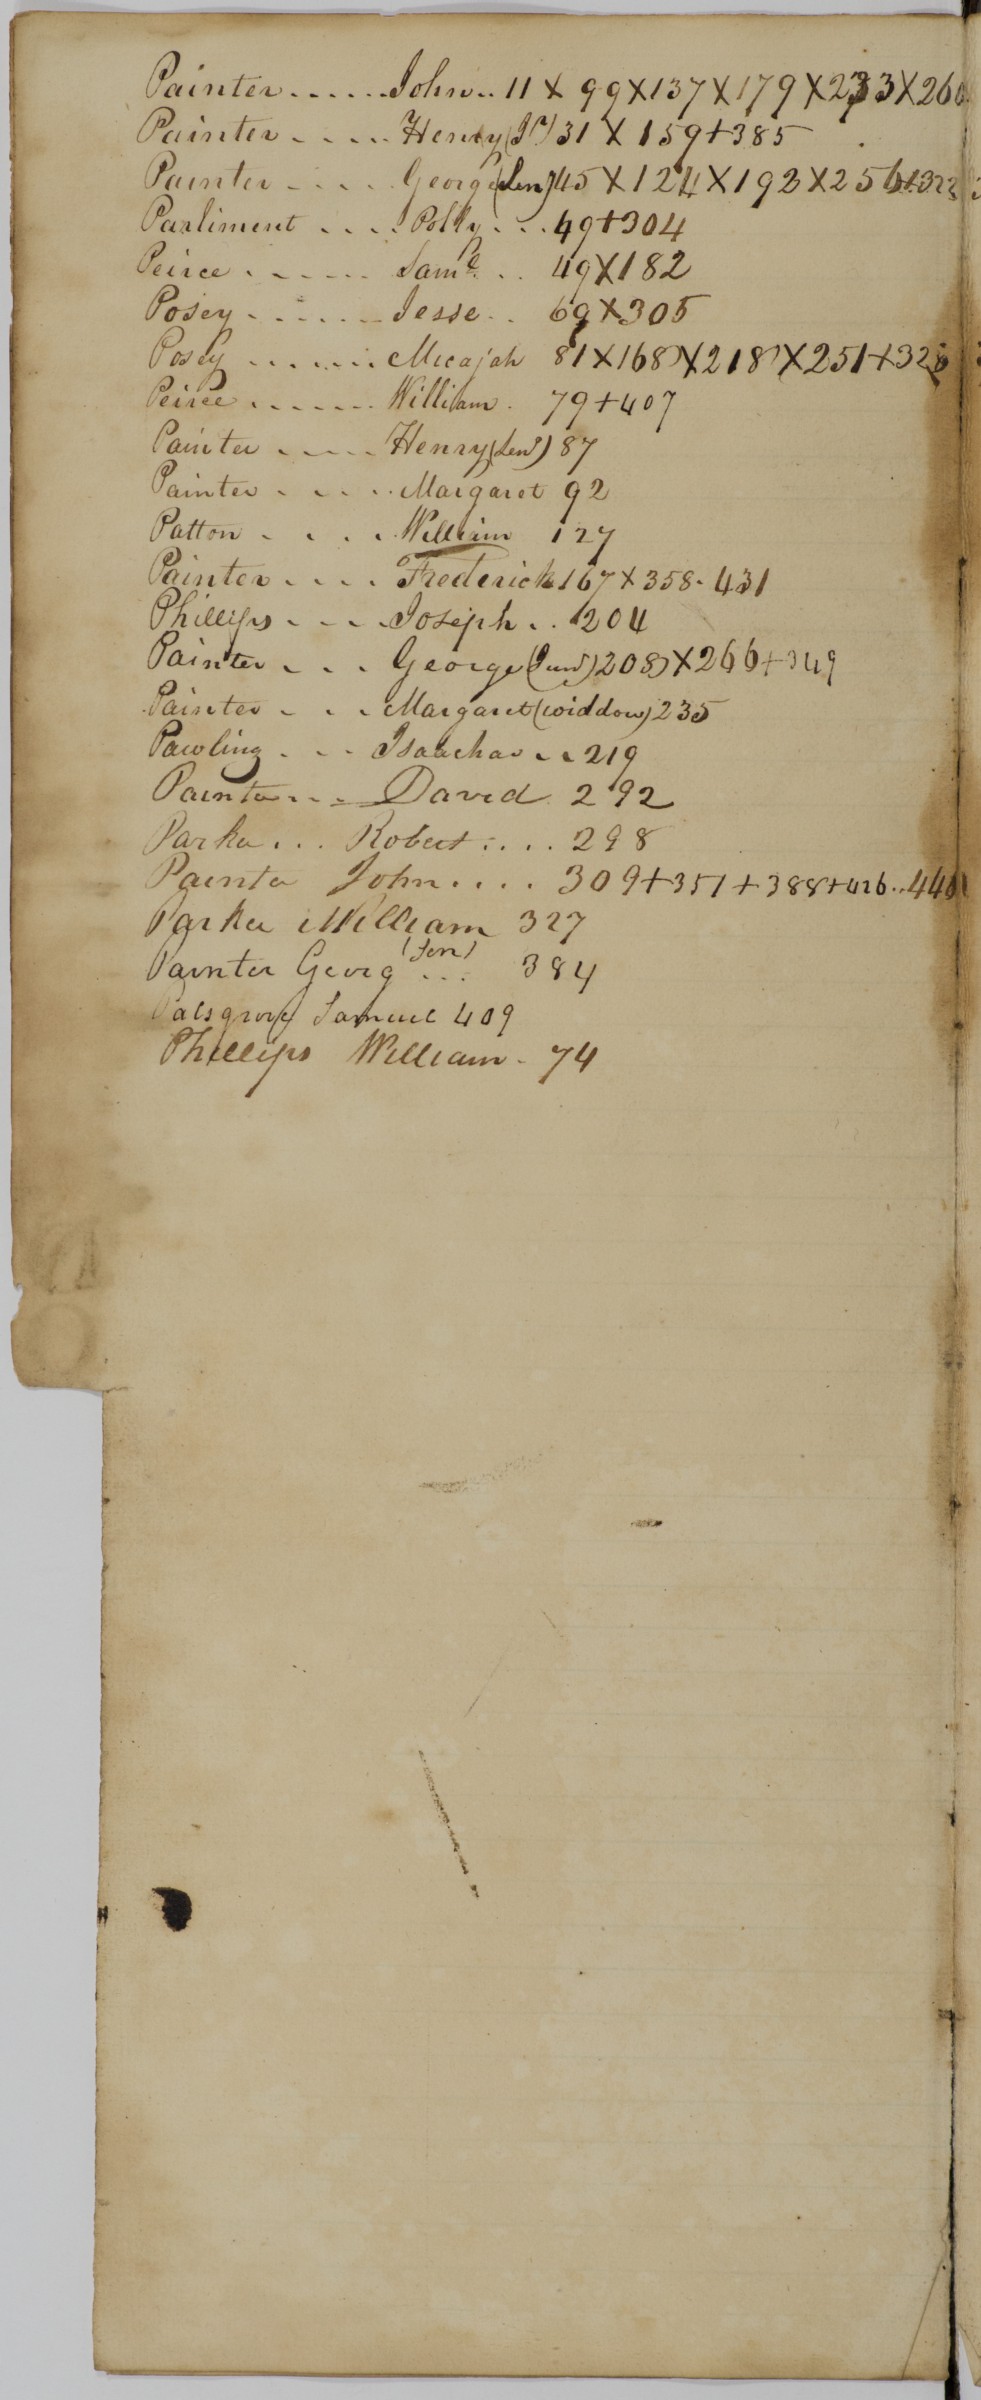 Painter......John.. 11 X 99 X 137 X 179 X 233 X 260
Painter.... Henry (Jr) 31 X 159+385
Painter.... George (Sen) 45 X 124 X 193 X 256+323
Parliment.... Polly... 49+304
Peirce...... Saml.. 49 X 182
Posey...... Jesse.. 69 X 305
Posey...... Micajah 81 X 168 X 218 X 251+328
Peirce...... William. 79+407
Painter.... Henry (Senr) 87
Painter.... Margaret 92
Patton.... William 127
Painter.... Frederick 167 X 358. 431
Phillips.... Joseph.. 204
Painter... George (Junr) 208 X 266+349
Painter... Margaret (widdow) 235
Pawling... Isaachar.. 219
Painter... David 292
Parker... Robert.... 298
Painter John.... 309+351+388+426..440
Parker William 327
Painter Georg (Sen)... 384
Palsgrove Samuel 409
Phillips William. 74
P